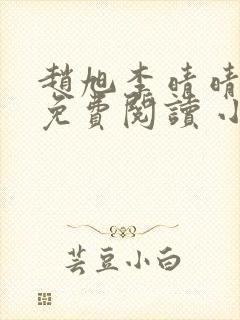 趙旭李晴晴
免費閱讀小
芸豆小白